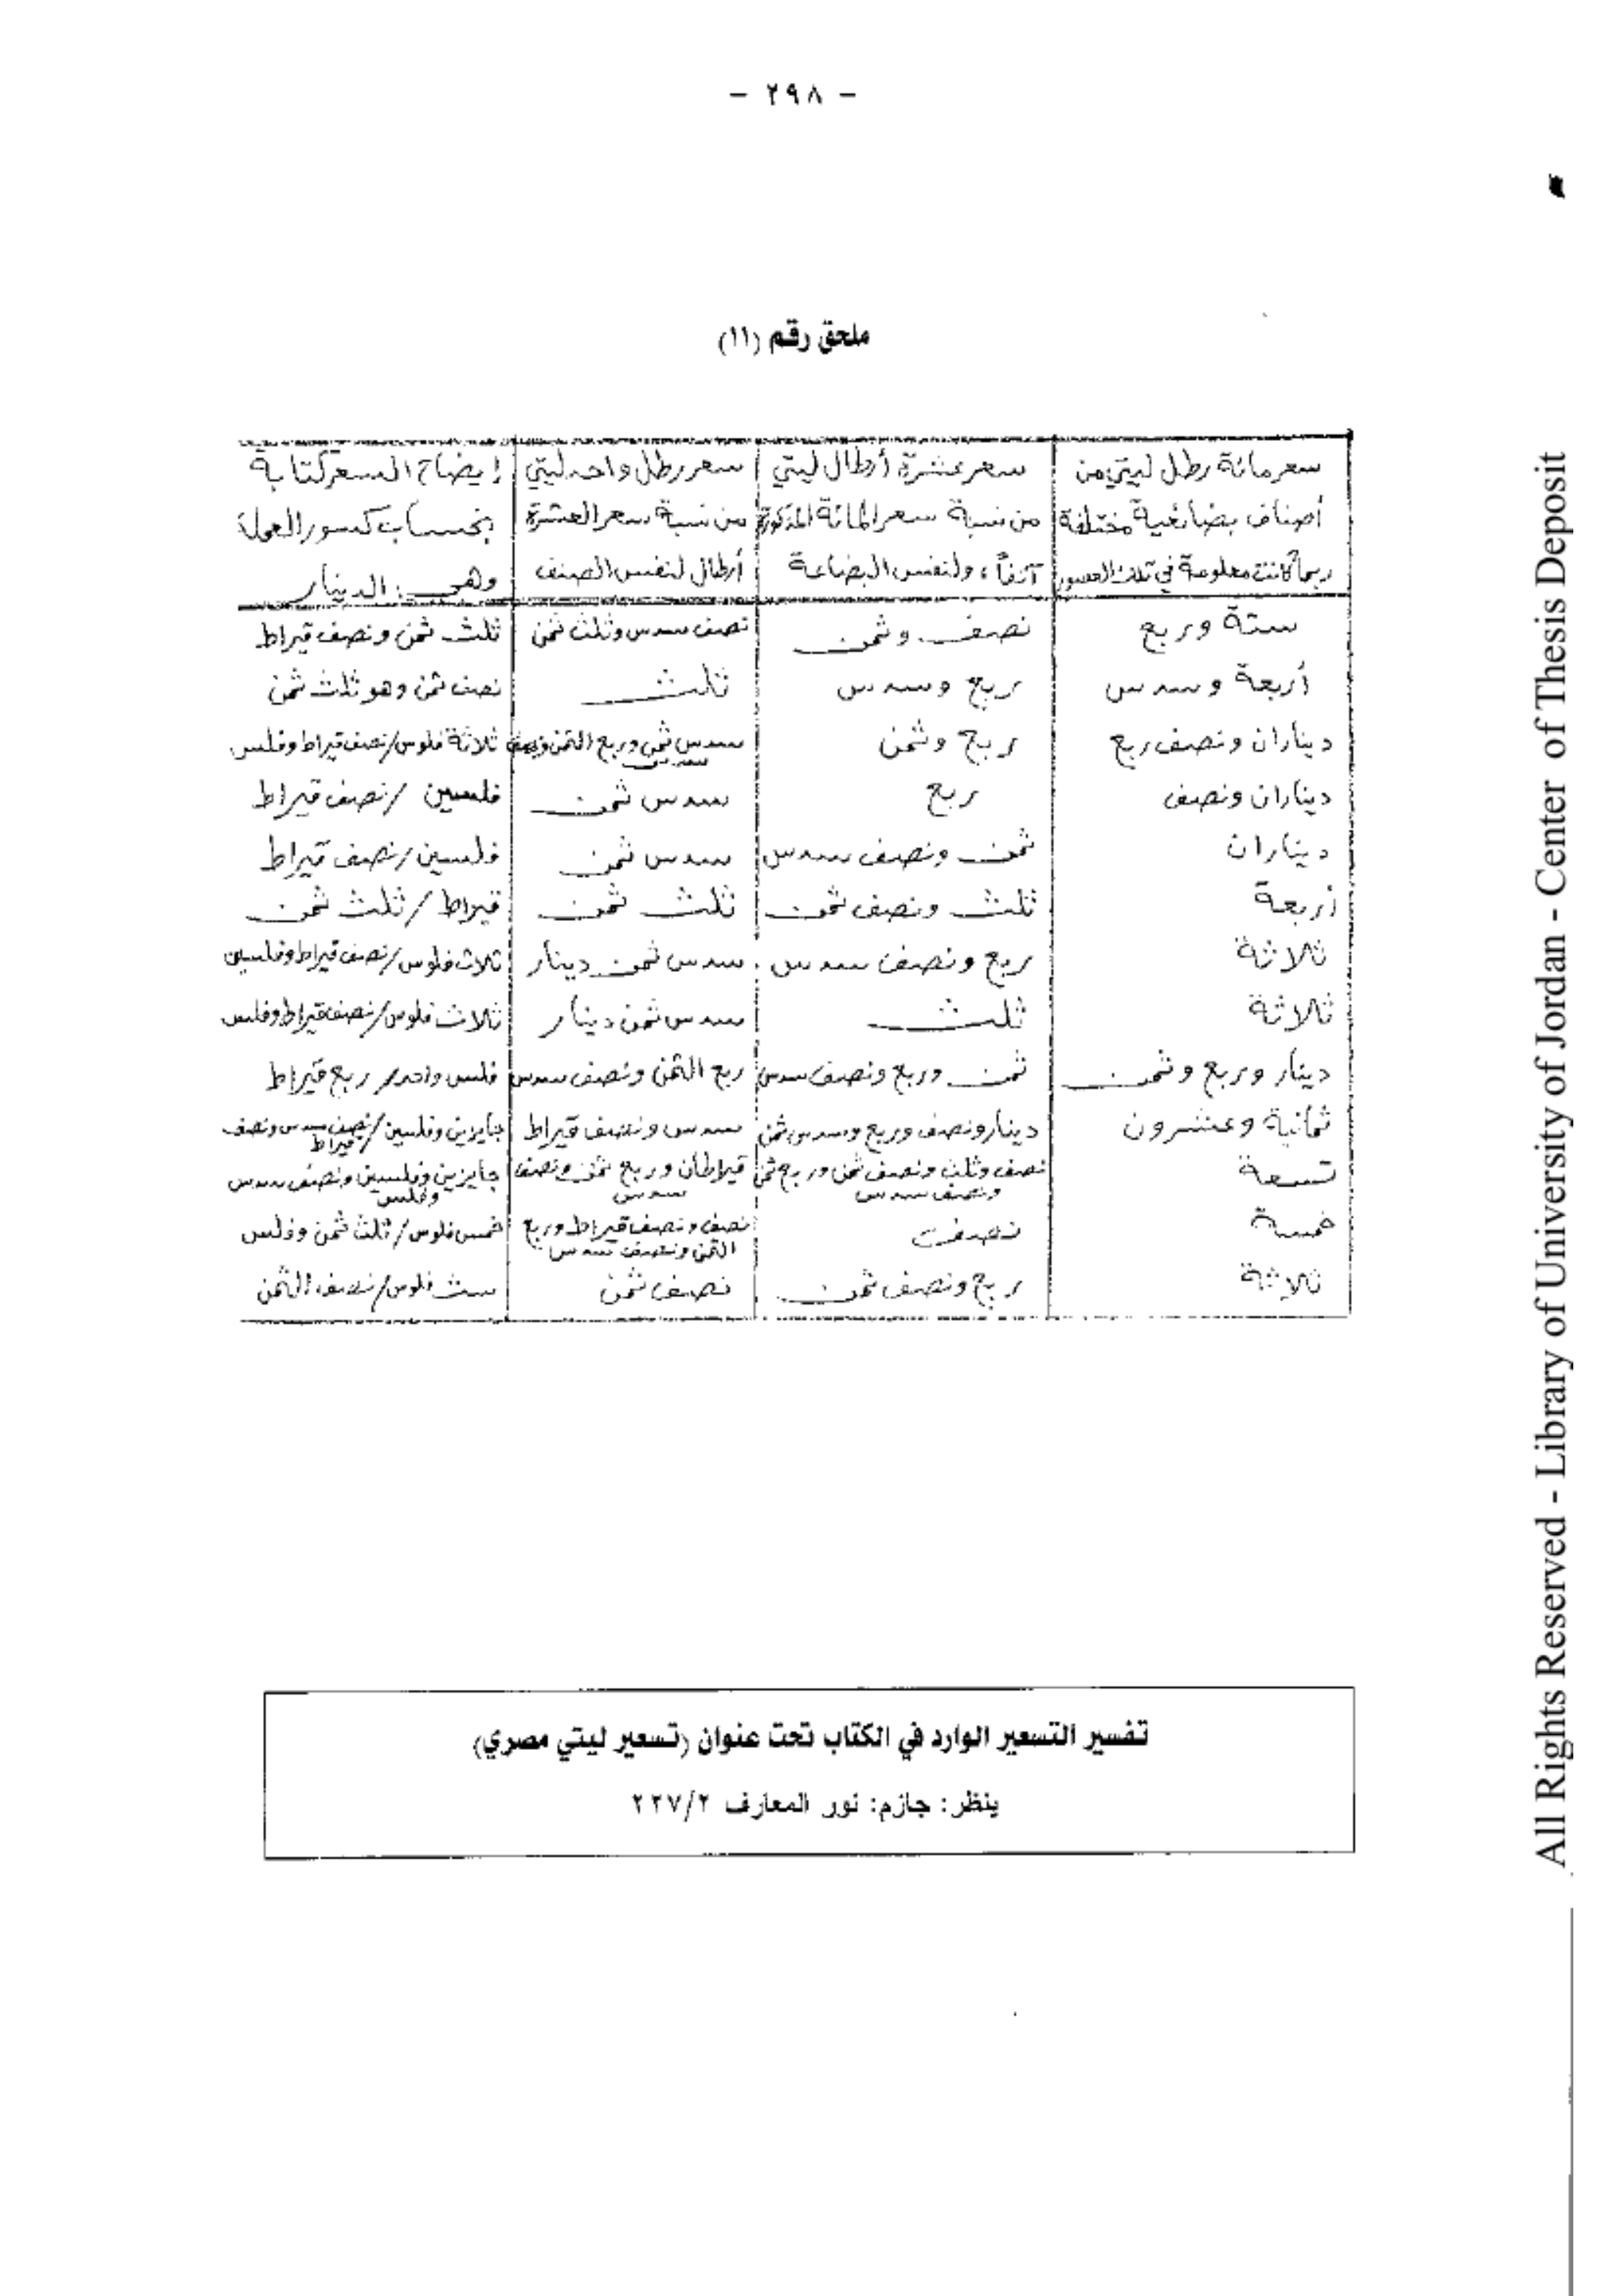 - ٢٩٨ -
ملحق رقم (١١)
سعر مائة رطل ليتي من | سعر عشرة أرطال ليتي | سعر رطل واحد ليتي | إيضاح السعر كتابة
أصناف بضائعية مختلفة | من نسبة سعر المائة المذكورة | من نسبة سعر العشرة | بحساب كسور العملة
ربما كانت معلومة في تلك العصور | آنفاً، ولنفس البضاعة | أرطال لنفس الصنف | وهي: الدينار
ستة وربع | نصف وثمن | نصف سدس وثلث ثمن | ثلث ثمن ونصف قيراط
أربعة وسدس | ربع وسدس | ثلث | نصف ثمن وهو ثلث ثمن
ديناران ونصف ربع | ربع وثمن | سدس ثمن وربع الثمن ونصف | ثلاثة فلوس/نصف قيراط وفلس
سدس
ديناران ونصف | ربع | سدس ثمن | فلسين /نصف قيراط
ديناران | ثمن ونصف سدس | سدس ثمن | فلسين/نصف قيراط
أربعة | ثلث ونصف ثمن | ثلث ثمن | قيراط/ثلث ثمن
ثلاثة | ربع ونصف سدس | سدس ثمن دينار | ثلاث فلوس/نصف قيراط وفلسين
ثلاثة | ثلث | سدس ثمن دينار | ثلاث فلوس/نصف قيراط وفلس
دينار وربع وثمن | ثمن وربع ونصف سدس | ربع الثمن ونصف سدس | فلس واحد/ربع قيراط
ثمانية وعشرون | دينار ونصف وربع وسدس ثمن | سدس ونصف قيراط | جايزين وفلسين/نصف سدس ونصف
قيراط
تسعة | نصف وثلث ونصف ثمن وربع ثمن | قيراطان وربع ثمن ونصف | جايزين وفلسين ونصف سدس
ونصف سدس | سدس | وفلس
خمسة | نصف | نصف ونصف قيراط وربع | خمس فلوس/ثلث ثمن وفلس
الثمن ونصف سدس
ثلاثة | ربع ونصف ثمن | نصف ثمن | ست فلوس/نصف الثمن
تفسير التسعير الوارد في الكتاب تحت عنوان (تسعير ليتي مصري)
ينظر: جازم: نور المعارف ٢٢٧/٢
All Rights Reserved - Library of University of Jordan - Center of Thesis Deposit